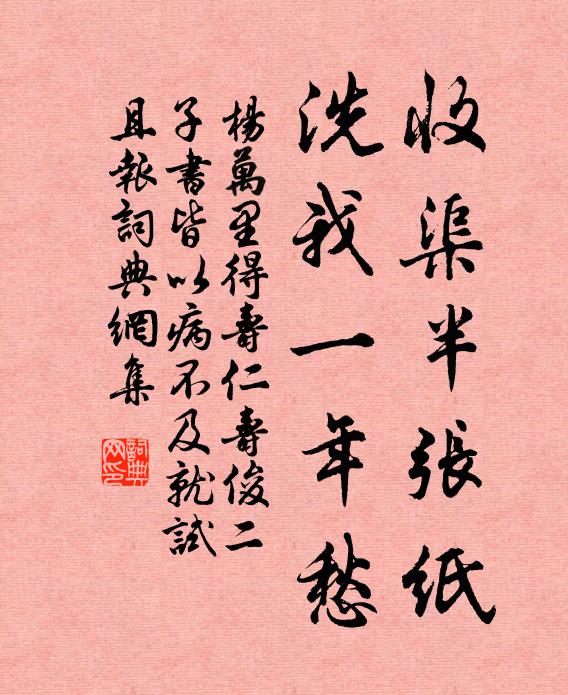 收渠半張紙
洗我一年愁
楊萬里得壽仁壽俊二
子書皆以病不及就試
且報詞典網集
詞典網印